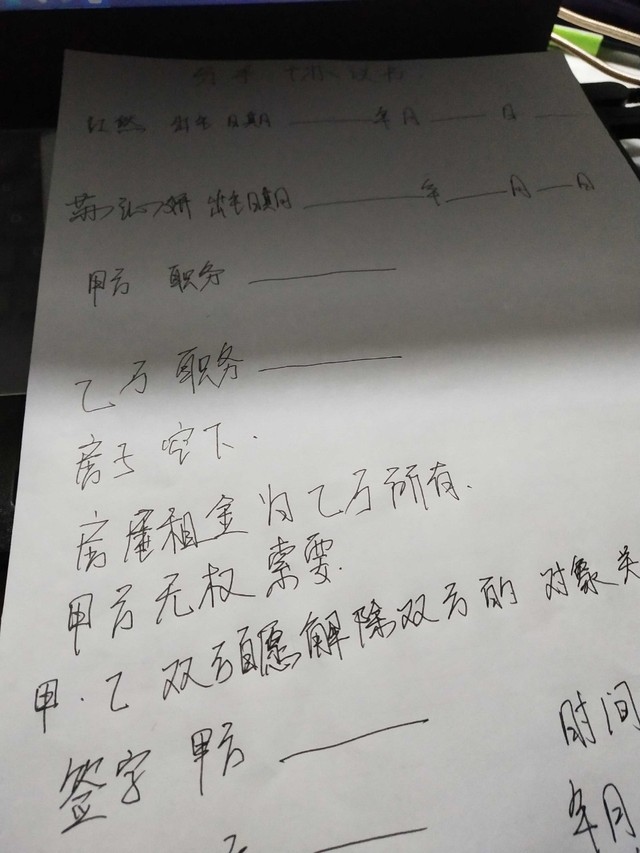 分手协议书
出生日期 年 月 日
出生日期 年 月 日
甲方 职务
乙方 职务
房子 空下.
房屋租金为乙方所有.
甲方无权索要.
甲.乙 双方自愿解除双方的 对象关
签字 甲方
时间
年月